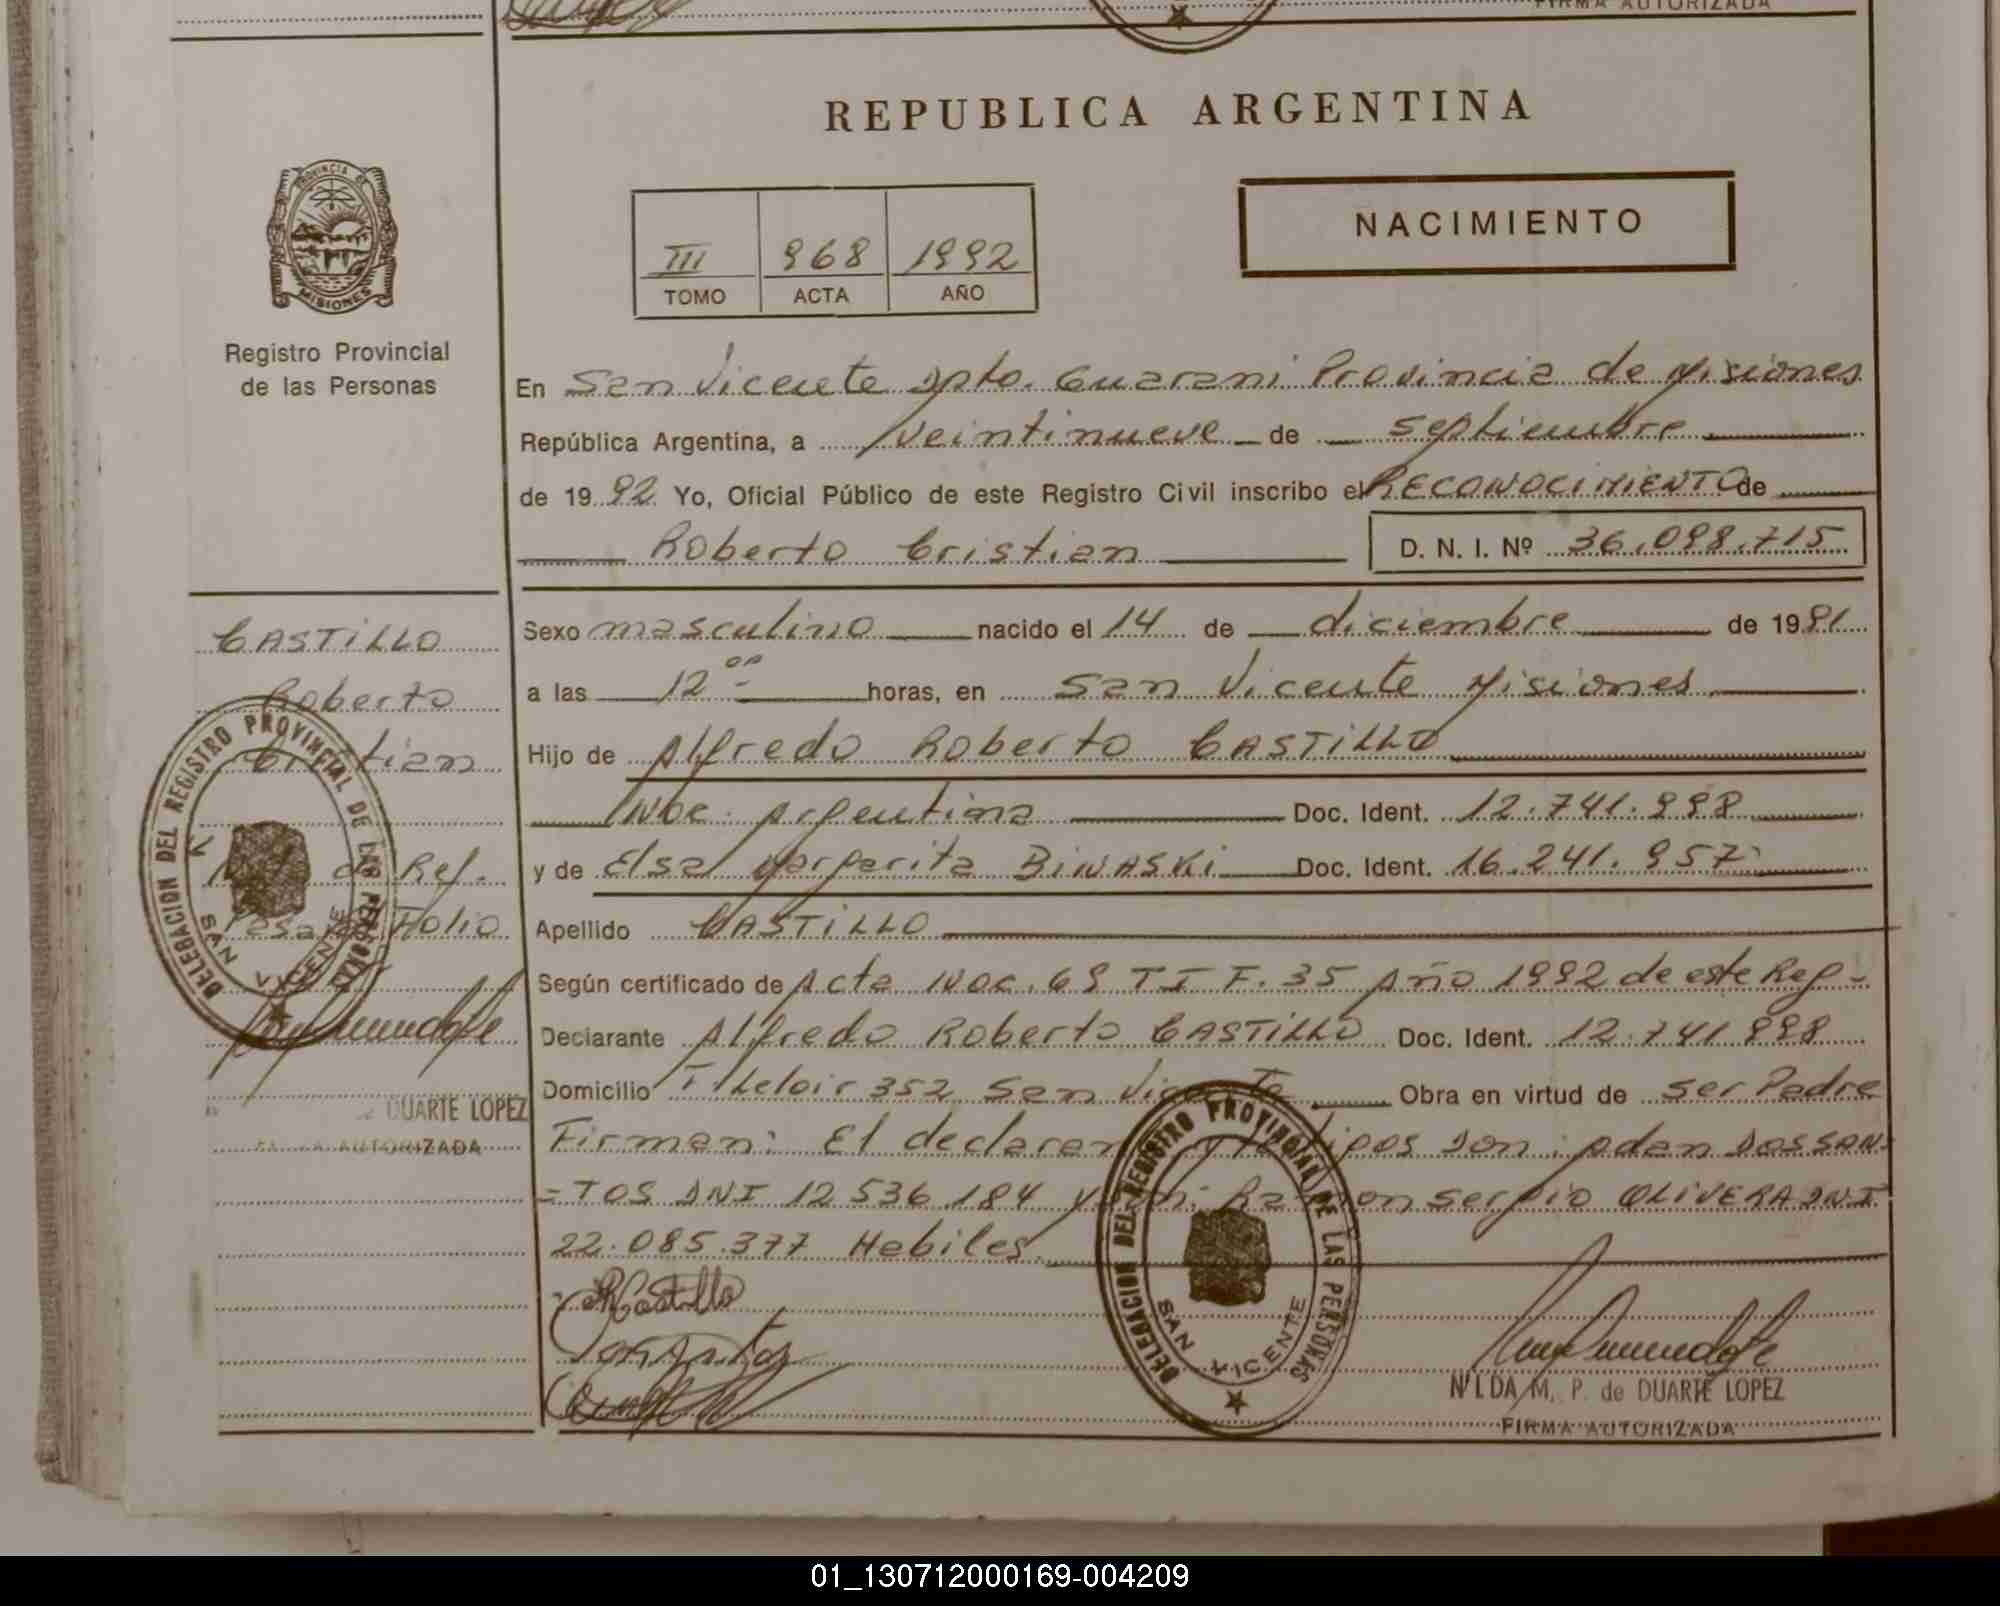 FIRMA AUTORIZADA
REPUBLICA ARGENTINA
PROVINCIA DE
MISIONES
Registro Provincial
de las Personas
III 968 1992
TOMO ACTA AÑO
NACIMIENTO
En San Vicente Dpto. Guarani Provincia de Misiones
República Argentina, a veintinueve de septiembre
de 1992 Yo, Oficial Público de este Registro Civil inscribo el RECONOCIMIENTO de
Roberto Cristian D. N. I. Nº 36.098.715
Sexo masculino nacido el 14 de diciembre de 1991
a las 12 00 horas, en San Vicente Misiones
Hijo de Alfredo Roberto CASTILLO
Nac. Argentina Doc. Ident. 12.741.998
y de Elsa Margarita BINASKI Doc. Ident. 16.241.957
Apellido CASTILLO
Según certificado de Acta Nac. 69 T I F. 35 Año 1992 de este Reg-
Declarante Alfredo Roberto CASTILLO Doc. Ident. 12.741.998
Domicilio Leloir 352 San Vicente Obra en virtud de ser Padre
Firman: El declarante y testigos Don: Adan DOSSAN-
=TOS DNI 12.536.184 y Ramon Sergio OLIVERA DNI
22.085.377 Habiles.
CASTILLO
Roberto
Cristian
de Ref.
Folio
DELEGACION DEL REGISTRO PROVINCIAL DE LAS PERSONAS
SAN VICENTE
DUARTE LOPEZ
AUTORIZADA
ARCastillo
DELEGACION DEL REGISTRO PROVINCIAL DE LAS PERSONAS
SAN VICENTE
NILDA M. P. de DUARTE LOPEZ
FIRMA AUTORIZADA
01_130712000169-004209